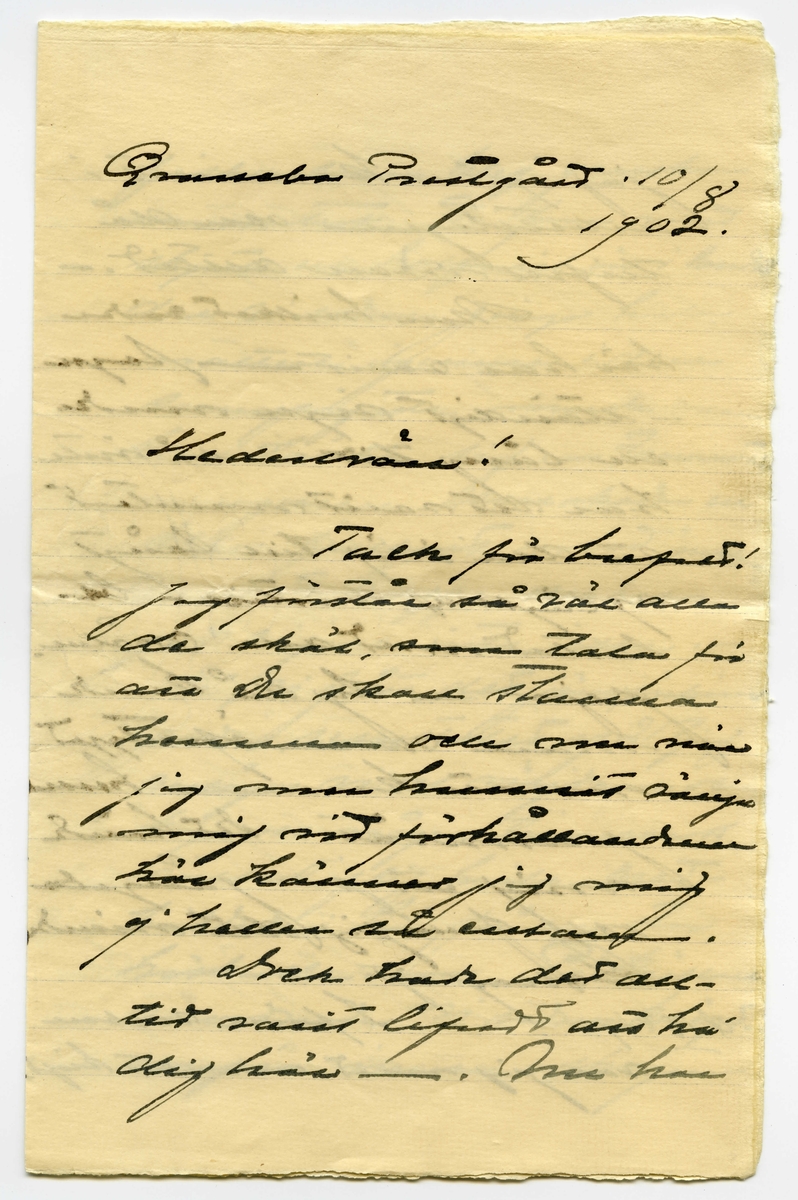 Prestgård. 10/8
1902.
Hedersvän!
Tack för brefvet!
Jag förstår så väl alla
de skäl, som tala för
att Du skall stanna
hemma och nu när
jag nu hunnit vänja
mig vid förhållandena
här känner jag mig
ej heller så ensam.
Dock hade det all-
tid varit lifvadt att ha
dig här — . Nu har